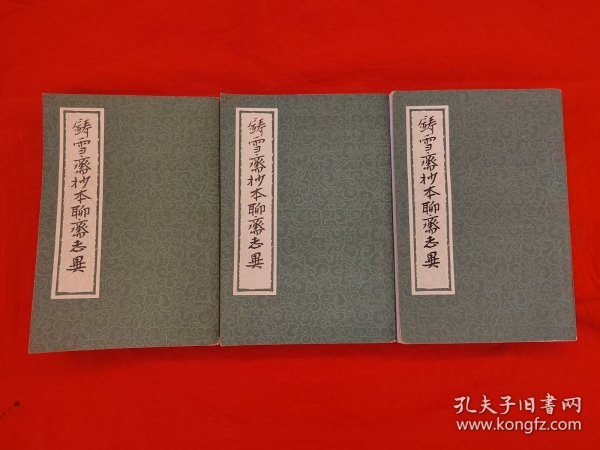 鋳雪齋抄本聊齋志異
鋳雪齋抄本聊齋志異
鋳雪齋抄本聊齋志異
孔夫子旧书网
www.kongfz.com